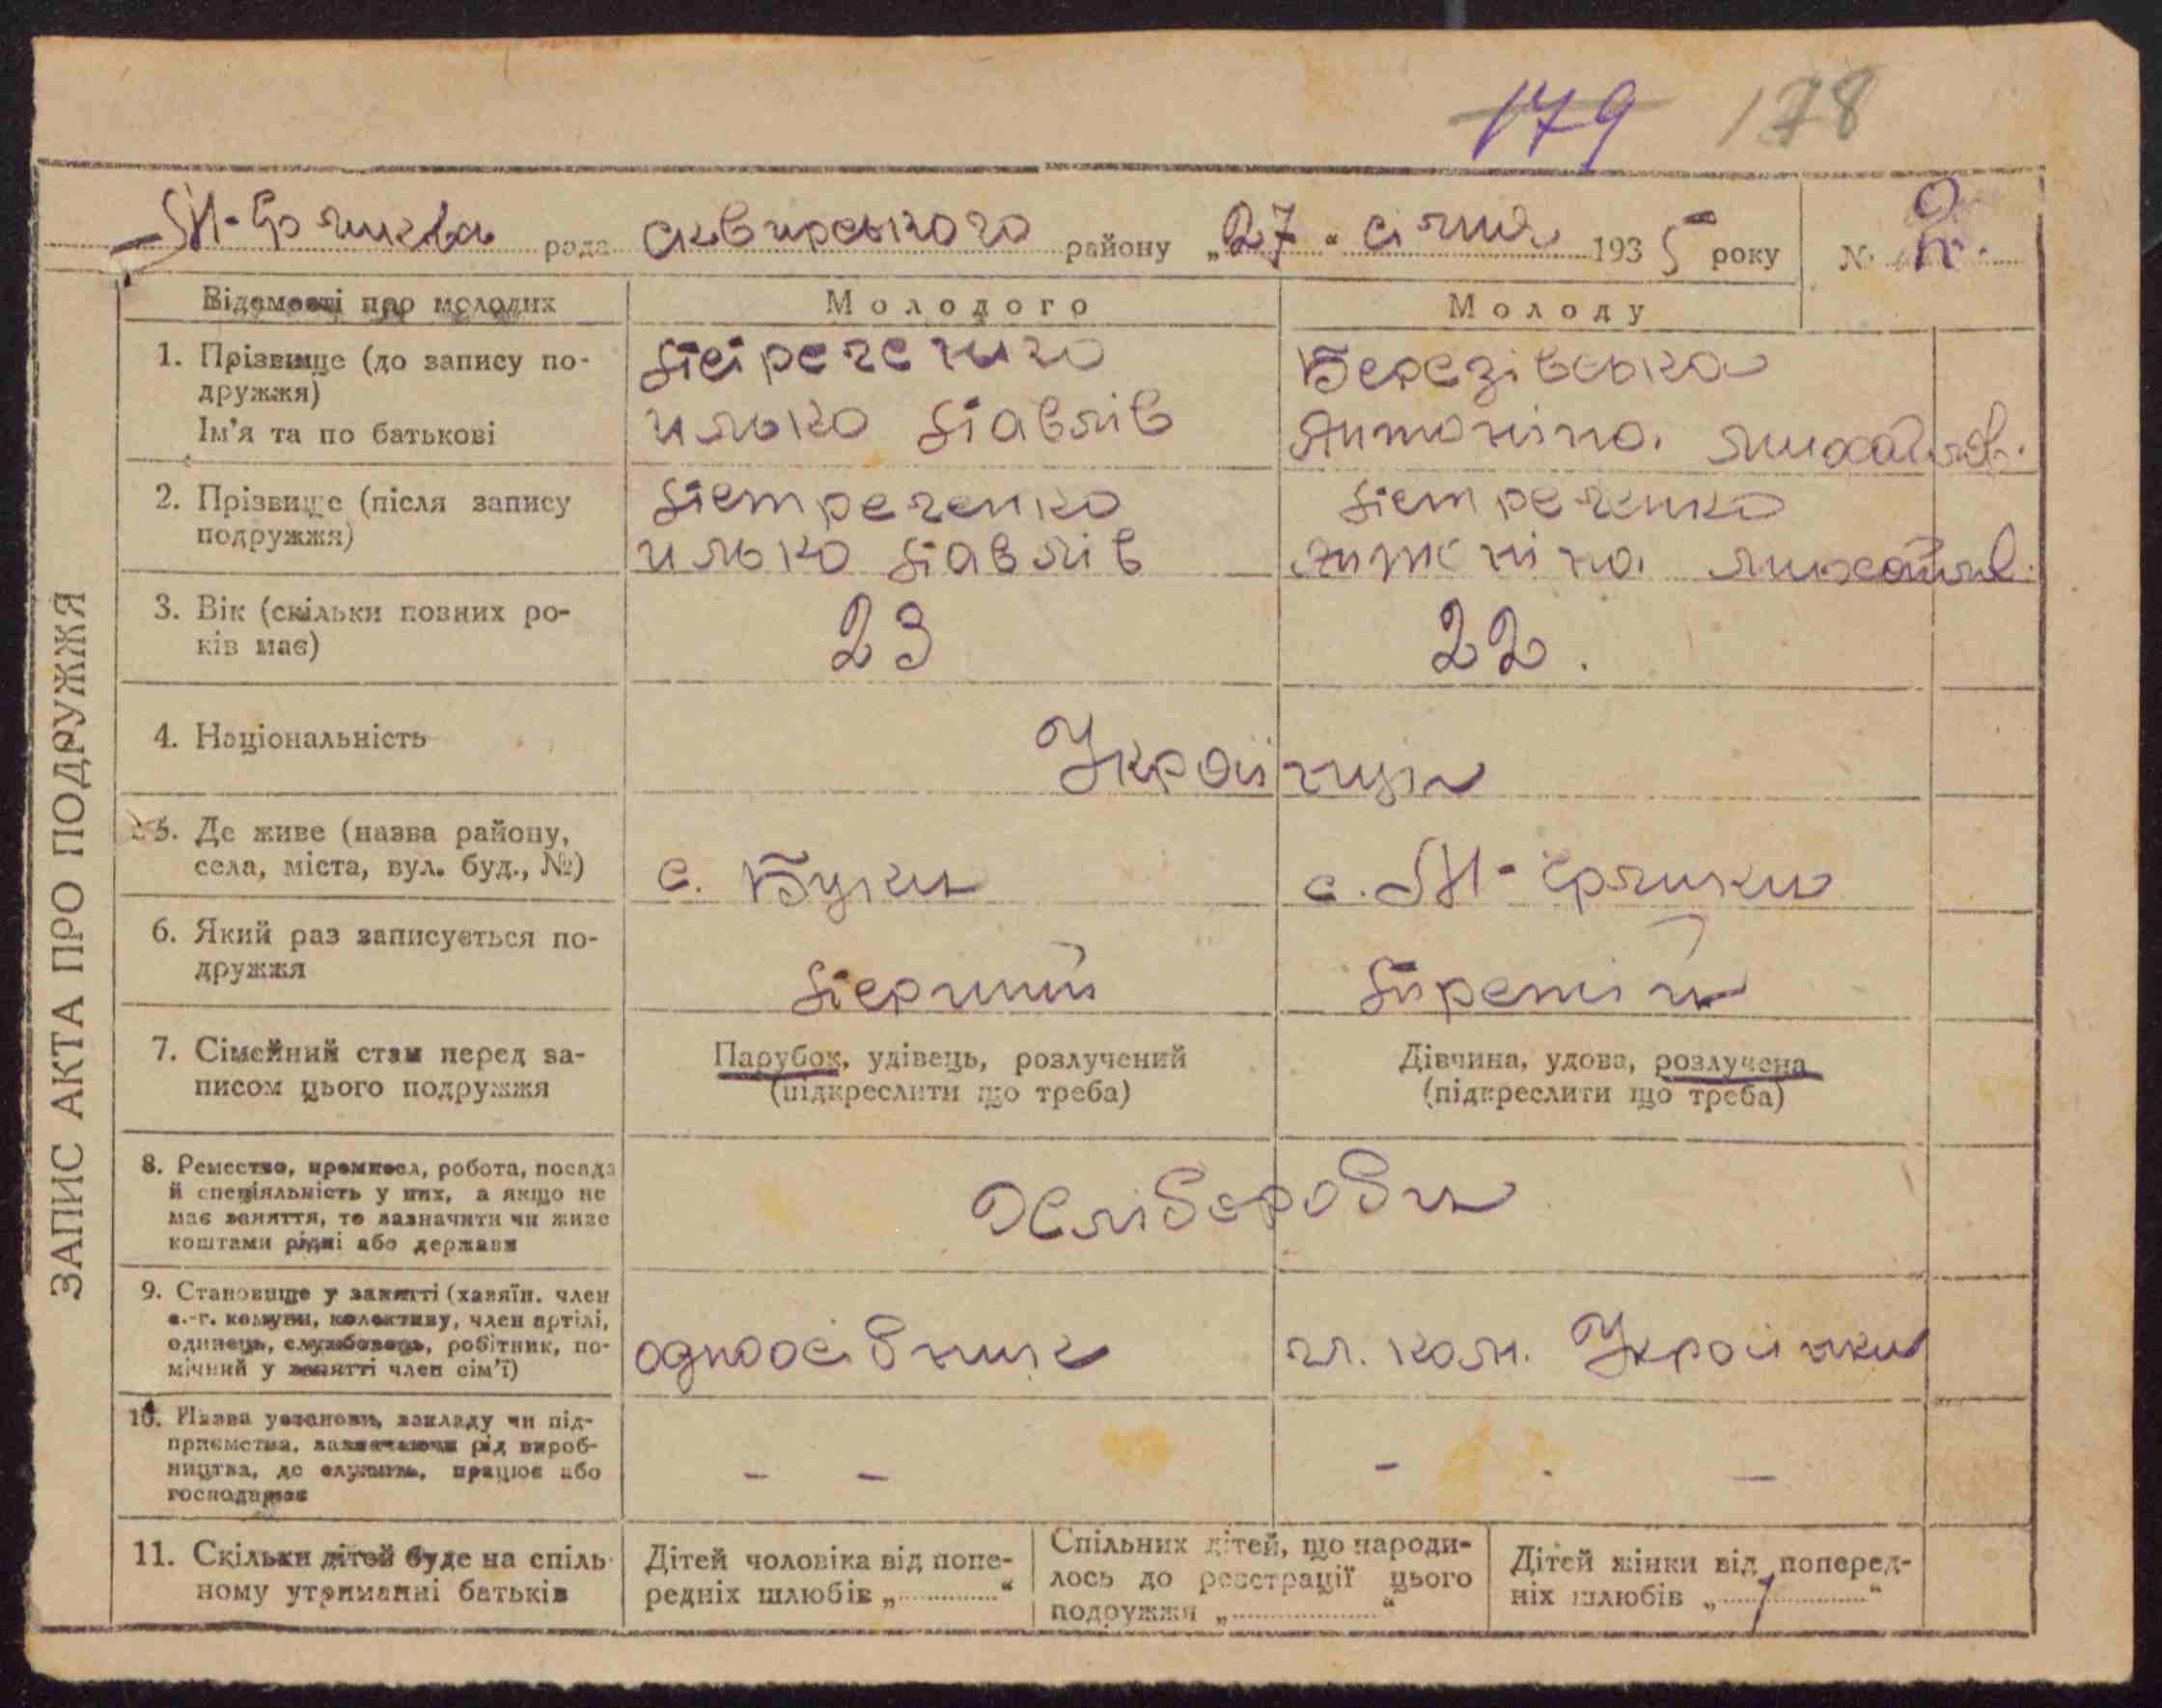 179 178
М-Єрчиква рада сквирського району „27“ січня 1935 року № 2.
Відомості про молодих Молодого Молоду
1. Прізвище (до запису по-
дружжя)
Петреченко Березівська
Ім'я та по батькові
илько Павлів Антоніна. михайлів.
2. Прізвище (після запису
подружжя)
Петреченко Петреченко
илько Павлів Антоніна. михайлів.
3. Вік (скільки повних ро-
ків має)
23 22.
4. Національність
Українци
5. Де живе (назва району,
села, міста, вул. буд., №)
с. Буки с. М-Єрчики
6. Який раз записується по-
дружжя
Перший Третій
7. Сімейний стан перед за-
писом цього подружжя
Парубок, удівець, розлучений
(підкреслити що треба)
Дівчина, удова, розлучена
(підкреслити що треба)
8. Ремество, промисел, робота, посада
й спеціяльність у них, а якщо не
має заняття, то зазначити чи живе
коштами рідні або держави
Хлібороби
9. Становище у занятті (хазяїн. член
с.-г. комуни, колективу, член артілі,
одинець, службовець, робітник, по-
мічний у занятті член сім'ї)
одноосібник чл. кол. Українки
10. Назва установи, закладу чи під-
приємства, зазначаючи рід вироб-
ництва, де служить, працює або
господарює
- - - - -
11. Скільки дітей буде на спіль-
ному утриманні батьків
Дітей чоловіка від попе-
редніх шлюбів „ “
Спільних дітей, що народи-
лось до реєстрації цього
подружжя „ “
Дітей жінки від поперед-
ніх шлюбів „1“
ЗАПИС АКТА ПРО ПОДРУЖЖЯ